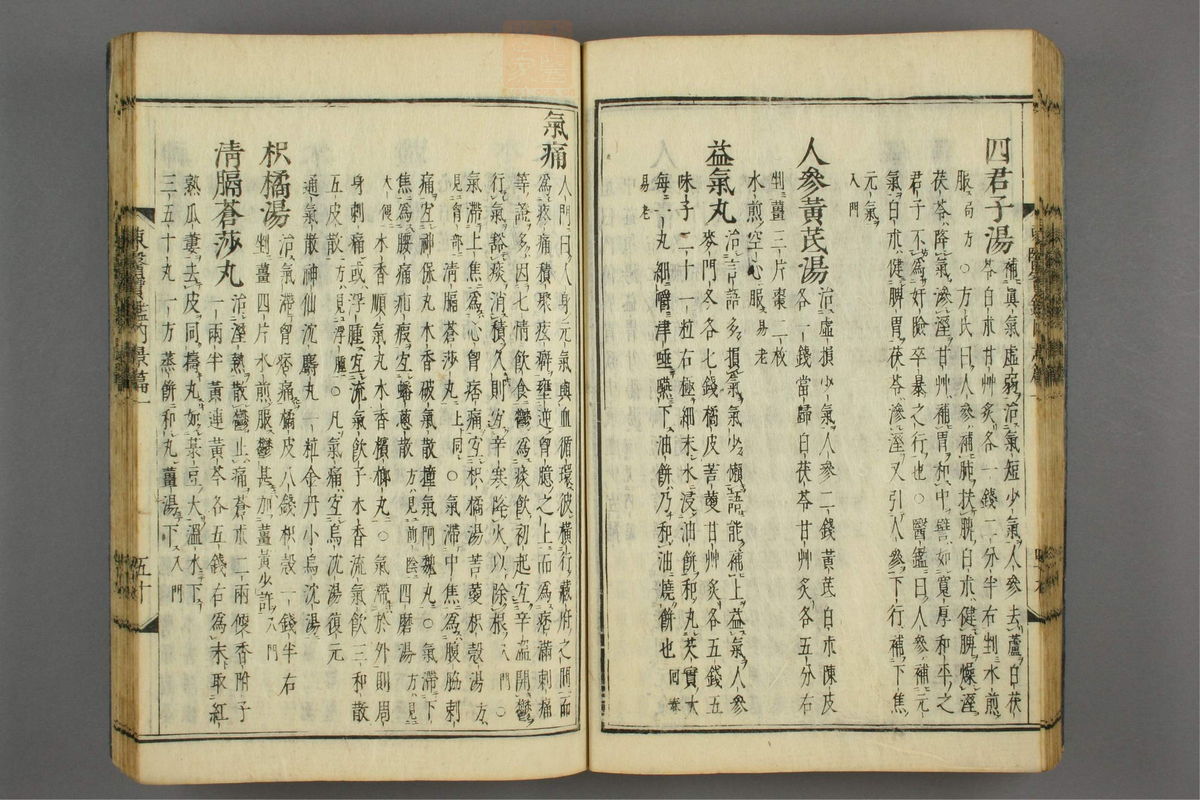 四君子湯 補眞氣虛弱治氣短少氣人參去蘆白茯
苓白朮甘艸炙各一錢二分半右剉水煎
服局方○方氏曰人參補肺扶脾白朮健脾燥溼
茯苓降氣滲溼甘艸補胃和中譬如寬厚和平之
君子不爲奸險卒暴之行也○醫鑑曰人參補元
氣白朮健脾胃茯苓滲溼又引人參下行補下焦
元氣入門
人參黃芪湯 治虛損少氣人參二錢黃芪白朮陳皮
各一錢當歸白茯苓甘艸炙各五分右
剉薑三片棗二枚
水煎空心服易老
益氣丸 治言語多損氣氣少懶語能補上益氣人參
麥門冬各七錢橘皮苦莄甘艸炙各五錢五
味子二十一粒右極細末水浸油餅和丸芡實大
每一丸細嚼津唾嚥下油餅乃和油燒餅也
易老
氣痛 入門曰人身元氣與血循環彼橫行藏府之間而
爲疼痛積聚痃癖壅逆胷臆之上而爲痞滿刺痛
等證多因七情飮食鬱爲痰飮初起宜辛溫開鬱
行氣豁痰消積久則宜辛寒降火以除根入門○
氣滯上焦爲心胷痞痛宜枳橘湯苦莄枳殼湯方
見胷部淸膈蒼莎丸上同○氣滯中焦爲腹脇刺
痛宜神保丸木香破氣散撞氣阿魏丸○氣滯下
焦爲腰痛疝瘕宜蟠蔥散方見前陰四磨湯方見
大便木香順氣丸木香檳榔丸○氣滯於外則周
身刺痛或浮腫宜流氣飮子木香流氣飮三和散
五皮散方見浮腫○凡氣痛宜烏沈湯復元
通氣散神仙沈麝丸一粒金丹小烏沈湯
枳橘湯 治氣滯胷痞痛橘皮八錢枳殼一錢半右
剉薑四片水煎服鬱甚加薑黃少許入門
淸膈蒼莎丸 治溼熱散鬱止痛蒼朮二兩便香附子
一兩半黃連黃芩各五錢右爲末取紅
熟瓜蔞去皮同擣丸如菉豆大溫水下
三五十丸一方蒸餠和丸薑湯下入門
東醫寶鑑內景篇一
五十